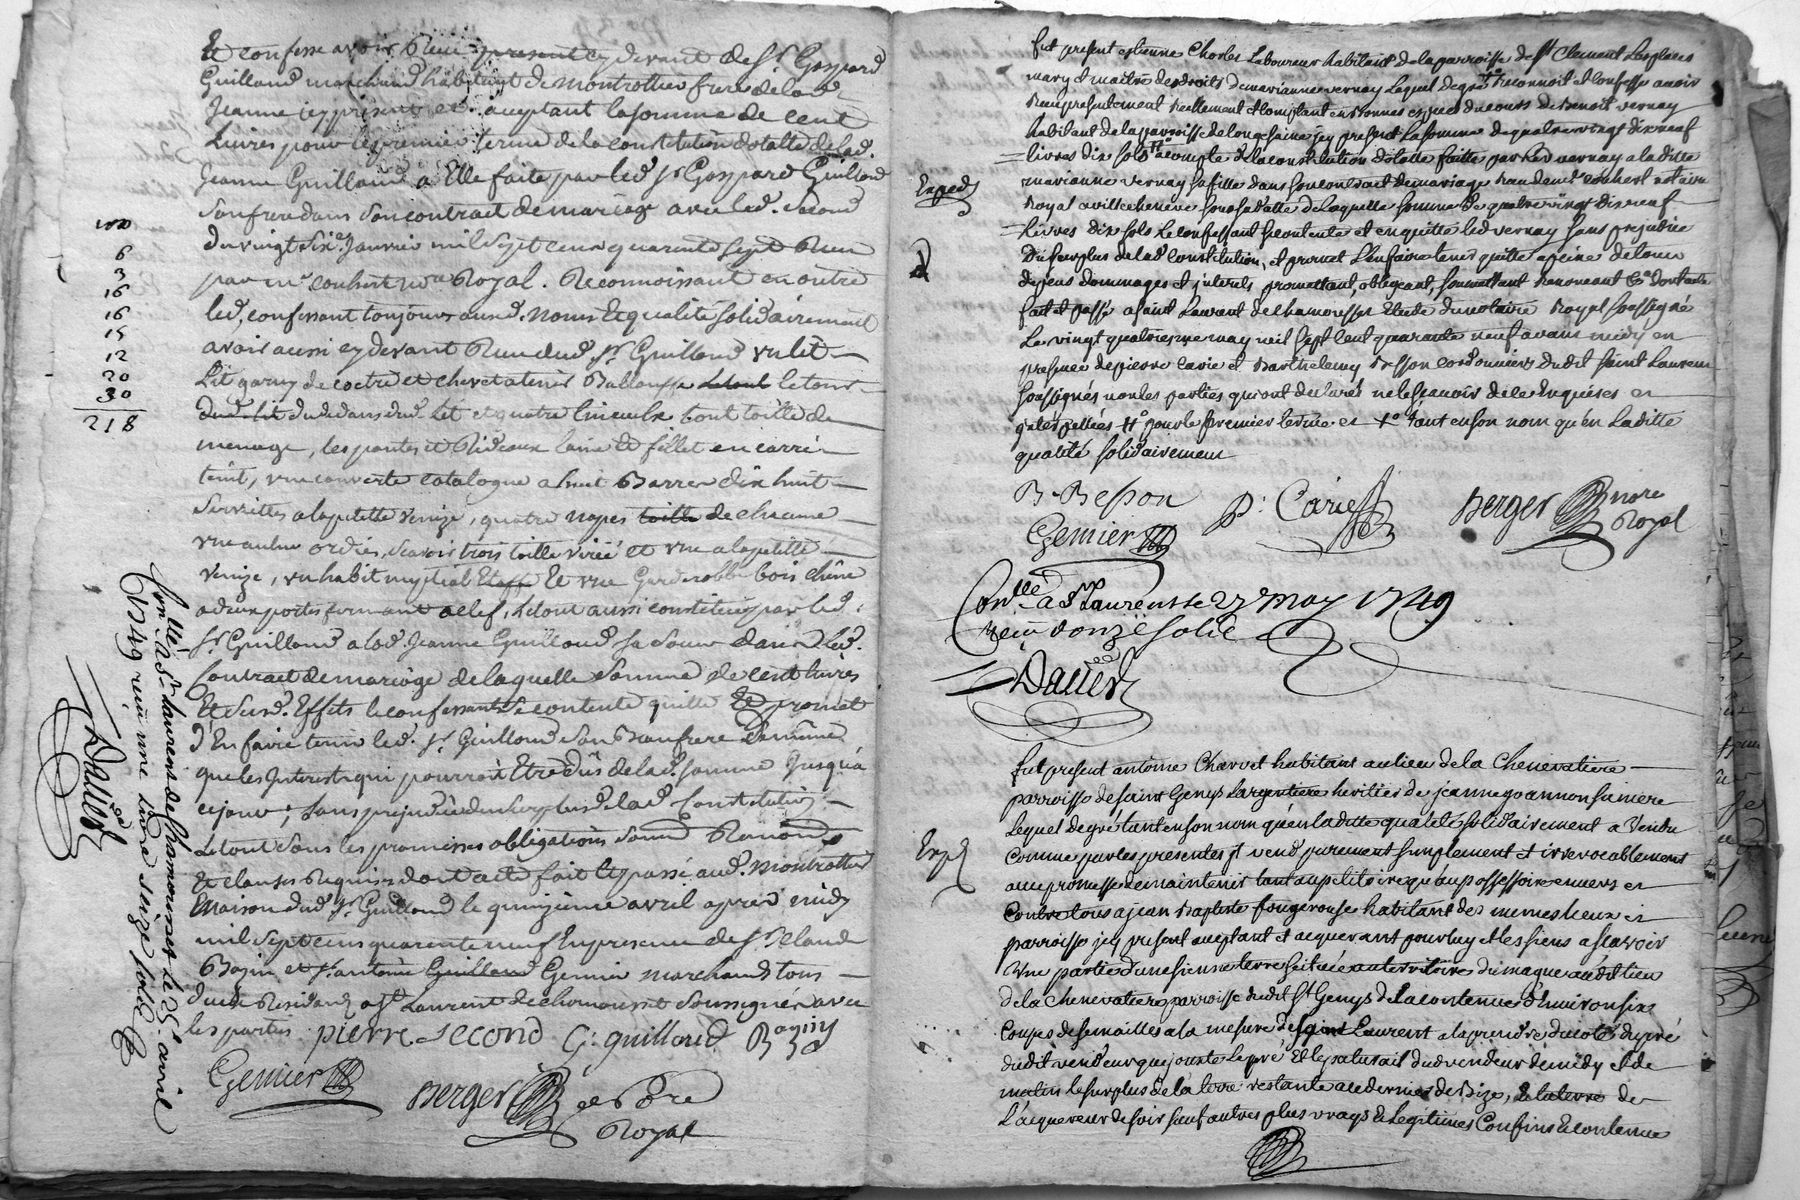 Et confesse avoir Receu presentem<sup>t</sup> cy devant de S<sup>r</sup> Gaspard
Guilloud marchand habitant de montrottier frere de lad.
Jeanne icy present et aceptant la somme de cent
Livres pour le premier terme de la constitution dotalle de lad.
Jeanne Guilloud a Elle faite par led. S<sup>r</sup> Gaspard Guilloud
Son frere dans Son contrait de mariage avec led. Second
du vingt Six Janvier mil Sept cens quarente Sept Receu
par m<sup>e</sup> couhert no<sup>re</sup> Royal. Reconnoissant en outre
led. confessant toujours aud. noms et qualité solidairement
avoir aussi cy devant Receu dud. S<sup>r</sup> Guilloud un lit
Lit garny de coetre et chevet a tenir Ballouffe le tour
dud. lit du dedans dud. lit et quatre linceulx tout toille de
menage, les pantes et Rideaux laine et fillet en carré
teint, une couverte catalogne a huit Barres dix huit
Serviettes a la petitte Venize, quatre napes de chacune
une aulne ordies, scavoir trois toille et une a la petitte
Venize, un habit nuptial Et une garderobbe bois chêne
a deux portes fermant a clef, le tout aussi constitué par led.
S<sup>r</sup> Guilloud a lad. Jeanne Guilloud sa soeur dans led.
Contrait de mariage de laquelle Somme de cent livres
Et Susd. Effets le confessant Se contente quitte Et promet
d'En faire tenir led. S<sup>r</sup> Guilloud Son Beaufrere de même
que les Interest qui pourroit Etre dûs de lad. somme Jusqu'a
ce jour, Sans prejudice du Surplus de lad. Constitution
Le tout Sous les promisses obligations Soum<sup>d</sup> Renond
Et clauses Requises dont acte fait et passé aud. Montrottier
Maison dud. S<sup>r</sup> Guilloud le quinzième avril après midy
mil Sept cens quarente neuf En presence de S<sup>r</sup> Claude
Bazin et S<sup>r</sup> antoine Genier marchands tous
duëe Residans a S<sup>t</sup> Laurent de chamousset Soussignés avec
les parties. pierre Second G: guilloud Bazin
Gemier Berger no<sup>re</sup>
Royal
100
6
3
16
16
15
12
20
30
218
Con<sup>llé</sup> a S<sup>t</sup> Laurent de Chamousset le 25<sup>e</sup> avril
1749 reçu une livre seize sols
Dallier
fut present estienne Charles Laboureur habitant de la parroisse de S<sup>t</sup> Clement Les places
mary et maitre des droits de marianne vernay Lequel de gré reconnoit et Confesse avoir
Receu presentement Reellement et Comptant en bonnes especes du cours de Benoit vernay
habitant de la parroisse de longesaine jcy present La somme de quatre vingt dix neuf
livres dix sols a compte de la constitution dotalle faitte par led vernay a laditte
marianne vernay sa fille dans son contract de mariage Receu de m<sup>e</sup> couhert notaire
Royal a villechenève sous sa datte de laquelle somme de quatre vingt dix neuf
Livres dix sols Le confessant se contente et en quitte led vernay sans prejudice
du surplus de lad constitution, et promet L'en faire tenir quitte a peine de tous
depens dommages et interets, promettant, obligeant, soumettant Renoncant &<sup>a</sup> dont acte
fait et passé a saint Laurent de chamousset Etude du notaire Royal soussigné
Le vingt quatrieme may mil sept cent quarante neuf avant midy en
presence de pierre Carié et Barthelemy Besson cordonniers dudit saint Laurent
soussignés non les parties qui ont declaré ne le scavoir de ce enquises et
interpellées # pour le premier terme et +° tant en son nom qu'en laditte
qualité solidairement
B. Besson P: Carié Berger no<sup>re</sup>
Gemier Royal
Exped.
Con<sup>llé</sup> a S<sup>t</sup> Laurens le 27<sup>e</sup> may 1749
reçu donze solse
Dallier
fut present antoine Charvet habitant au lieu de la Chenevatiere
parroisse de saint Genys Largentiere heritier de jeanne goannon sa mere
Lequel de gré tant en son nom qu'en laditte qualité solidairement a Vendu
Comme par les presentes jl vend purement simplement et irrevocablement
avec promesse de maintenir tant au petitoire qu'au possessoire envers et
Contre tous a jean Baptiste fougerouse habitant des memes lieux et
parroisse jcy present aceptant et acquerant pour luy et les siens a scavoir
Une partie d'une sienne terre scituée au territoire du magne audit lieu
de la Chenevatiere parroisse dudit S<sup>t</sup> Genys de la contenue d'environ six
Coupes de semailles a la mesure de saint Laurent a la prendre du coté du pré
dudit vendeur qui jouxte Le pré Et le paturail dud vendeur de midy et de
matin le surplus de la terre restante au dernier de Bize, la terre de
L'acquereur de soir sauf autres plus vrays & Legitimes Confins Et contenue
Exp.